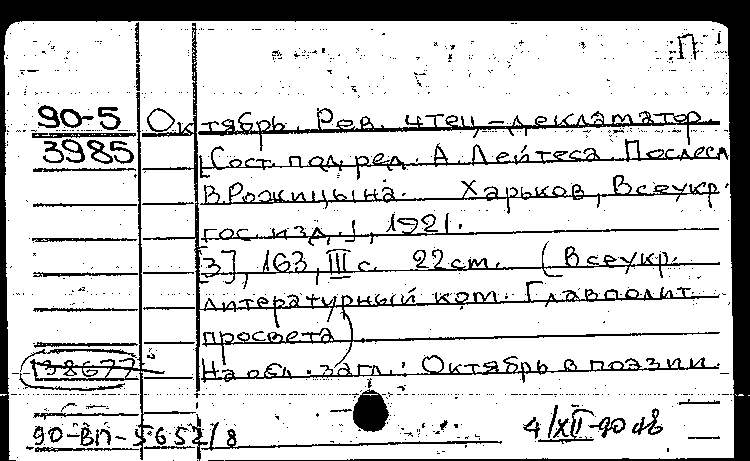 П
90-5 Октябрь. Рев. чтец-декламатор.
3985 [Сост. под ред. А. Лейтеса. Послесл
В. Рожицына. Харьков, Всеукр.
гос. изд.], 1921.
[3], 163, III с. 22 ст. (Всеукр.
литературный ком. Главполит
просвета)
138677 На обл. загл.: Октябрь в поэзии
90-ВП-5652/8 4/XII-90